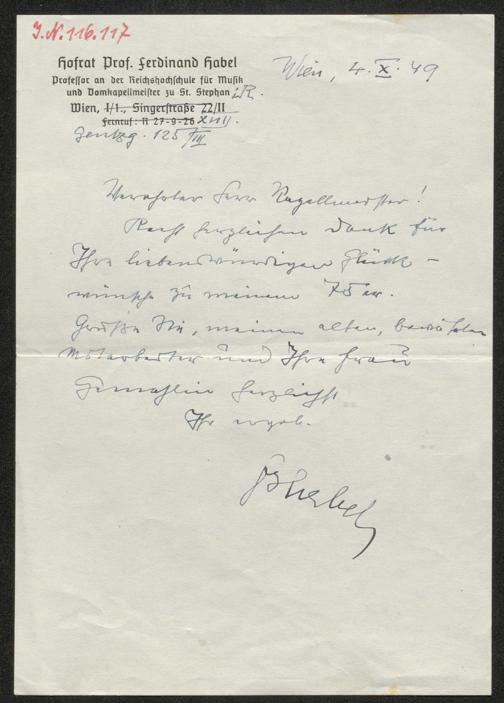 I.N. 116.117
Hofrat Prof. Ferdinand Habel
Professor an der Reichshochschule für Musik
und Domkapellmeister zu St. Stephan i/R.
Wien, I/1., Singerstraße 22/II
Fernruf: R 27-9-26 XVIII.
Gentzg. 125/III
Wien, 4. X. 49
Verehrter Herr Kapellmeister!
Recht herzlichen Dank für
Ihre liebenswürdigen Glück-
wünsche zu meinem 75er.
Grüße Sie, meinen alten, bewährten
Mitarbeiter und Ihre Frau
Gemahlin herzlichst
Ihr ergeb.
FHabel